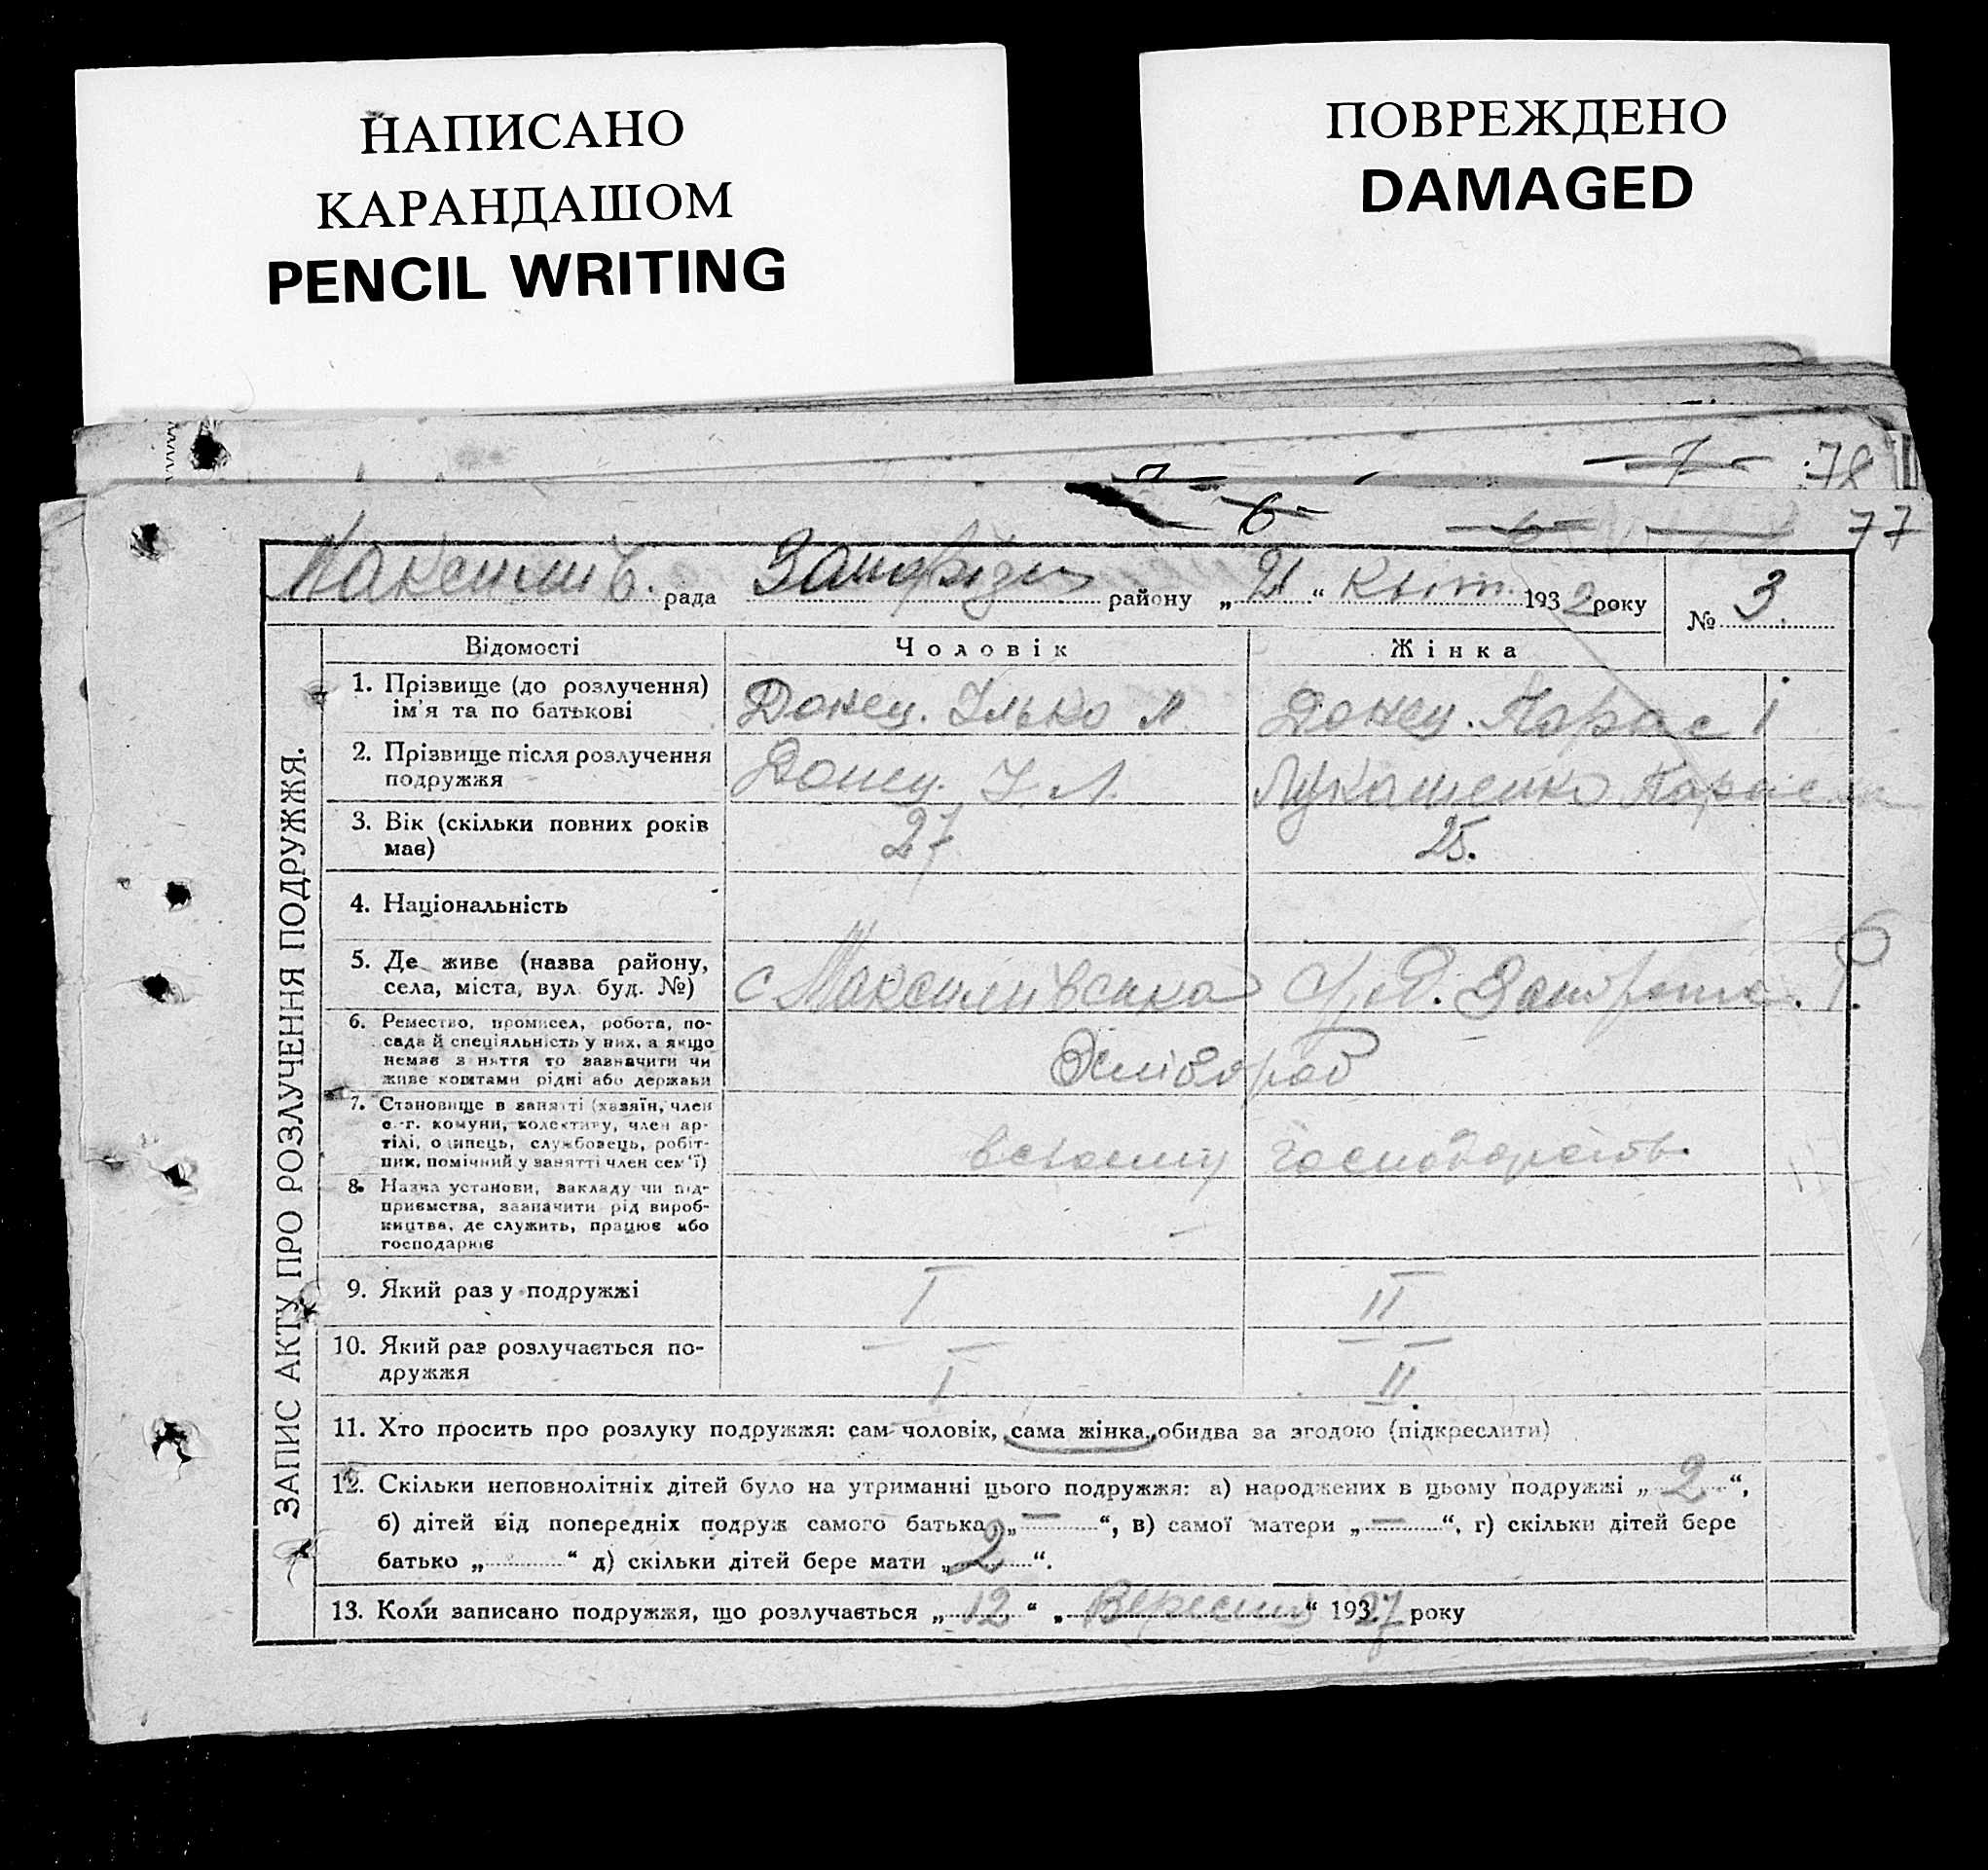 НАПИСАНО
КАРАНДАШОМ
PENCIL WRITING
ПОВРЕЖДЕНО
DAMAGED
7 78
6 77
Максимів. рада району „21“ 1932 року № 3.
ЗАПИС АКТУ ПРО РОЗЛУЧЕННЯ ПОДРУЖЖЯ.
Відомості Чоловік Жінка
1. Прізвище (до розлучення) Донец. Ілько Л. Донец. Парас
ім'я та по батькові
2. Прізвище після розлучення Донец. І. Л. Лукашенко
подружжя
3. Вік (скільки повних років 27 25.
має)
4. Національність
5. Де живе (назва району,
села, міста, вул. буд. №) с Максимівська
6. Ремество, промисел, робота, по-
сада й спеціяльність у них, а якщо
немає заняття то зазначити чи Хлібороб
живе коштами рідні або держави
7. Становище в занятті (хазяїн, член
с.-г. комуни, колективу, член ар-
тілі, одинець, службовець, робіт-
ник, помічний у занятті член сем'ї) господарств.
8. Назва установи, закладу чи під-
приємства, зазначити рід вироб-
ництва, де служить, працює або
господарює
9. Який раз у подружжі I II
10. Який раз розлучається по-
дружжя I II
11. Хто просить про розлуку подружжя: сам чоловік, сама жінка, обидва за згодою (підкреслити)
12. Скільки неповнолітніх дітей було на утриманні цього подружжя: а) народжених в цьому подружжі „2“,
б) дітей від попередніх подруж самого батька „—“, в) самої матери „—“, г) скільки дітей бере
батько „ “ д) скільки дітей бере мати „2“.
13. Коли записано подружжя, що розлучається „12“ „Вересня“ 1927 року